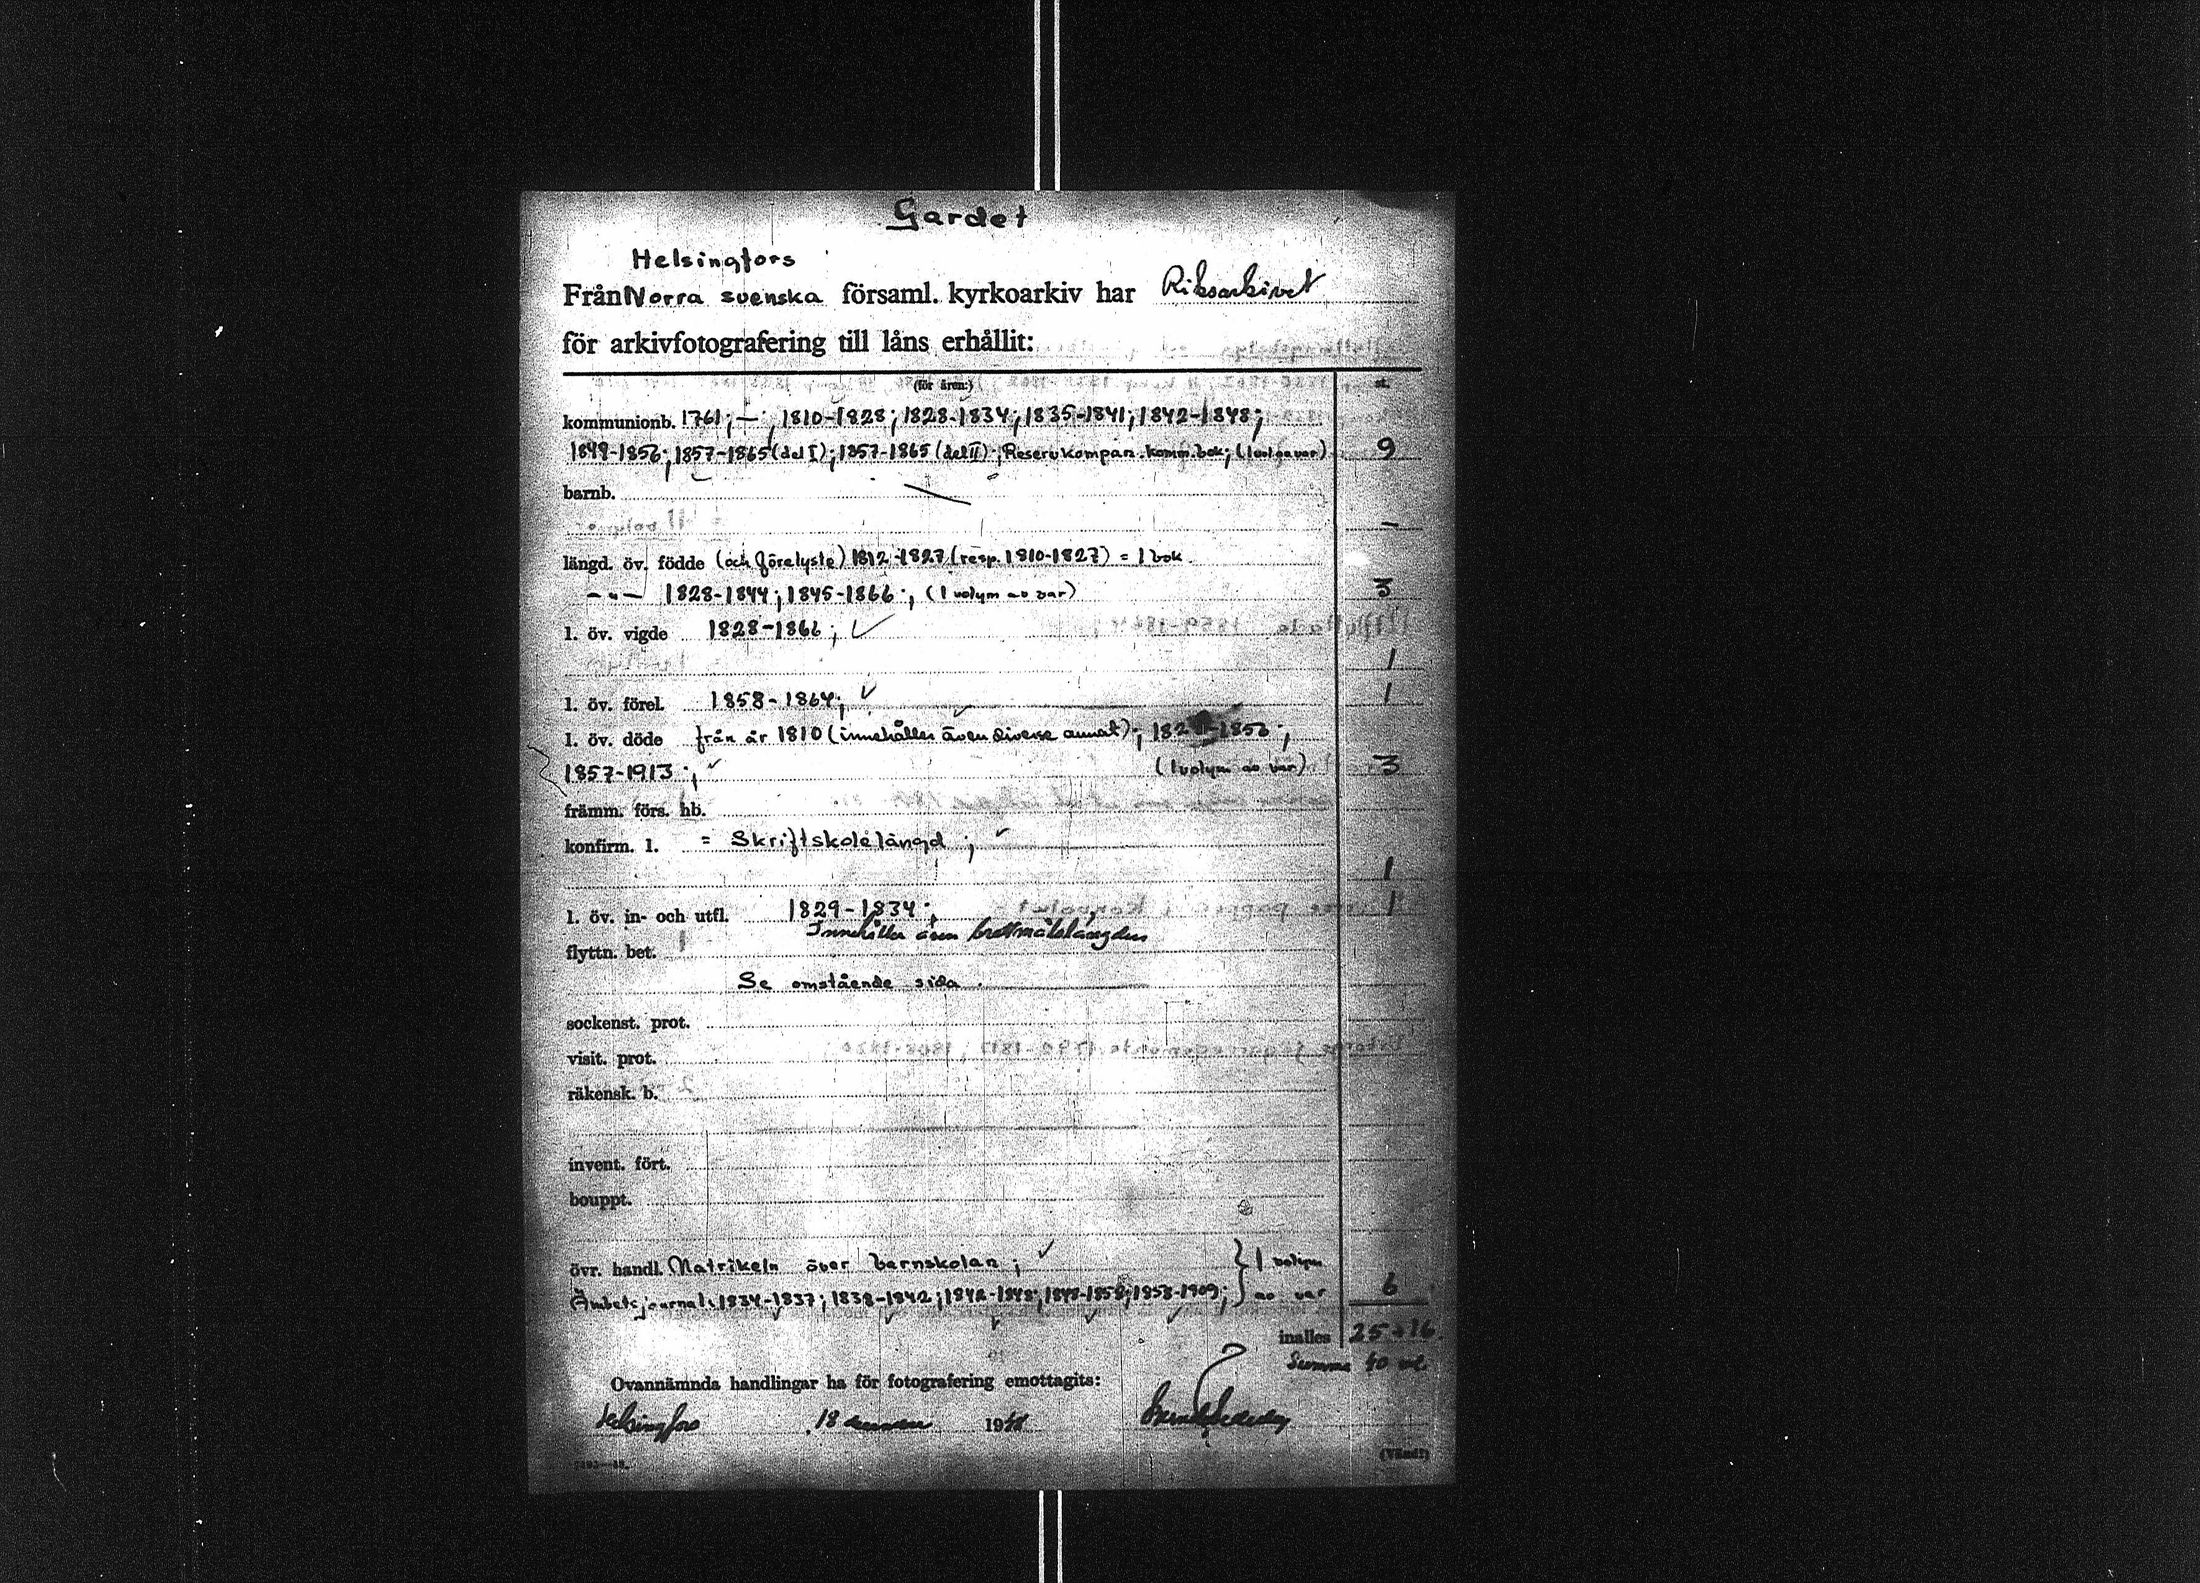 Gardet
Helsingfors
Från Norra svenska församl. kyrkoarkiv har Riksarkivet
för arkivfotografering till låns erhållit:
(för åren:) st.
kommunionb. 1761; — ; 1810-1828; 1828-1834; 1835-1841; 1842-1848;
1849-1856; 1857-1865 (del I); 1857-1865 (del II); Reservkompan. komm.bok; (1 vol. av var) 9
barnb. —
—
längd. öv. födde (och förelyste) 1812-1827 (resp. 1810-1827) = 1 bok.
— " — 1828-1844; 1845-1866; (1 volym av var) 3
l. öv. vigde 1828-1866;
1
l. öv. förel. 1858-1864; 1
l. öv. döde från år 1810 (innehåller även diverse annat); -1856;
1857-1913; (1 volym av var) 3
främm. förs. hb.
konfirm. l. = Skriftskolelängd;
1
l. öv. in- och utfl. 1829-1834; 1
Innehåller även brottmålslängden
flyttn. bet.
Se omstående sida.
sockenst. prot.
visit. prot.
räkensk. b.
invent. fört.
bouppt.
övr. handl. Matrikeln över barnskolan; } 1 volym
Ämbetsjournal: 1834-1837; 1838-1842; 1842-1848; 1848-1858; 1858-1909; } av var 6
inalles 25+16
Summa 40 vol
Ovannämnda handlingar ha för fotografering emottagits:
Helsingfors 18 1948
(Vänd!)